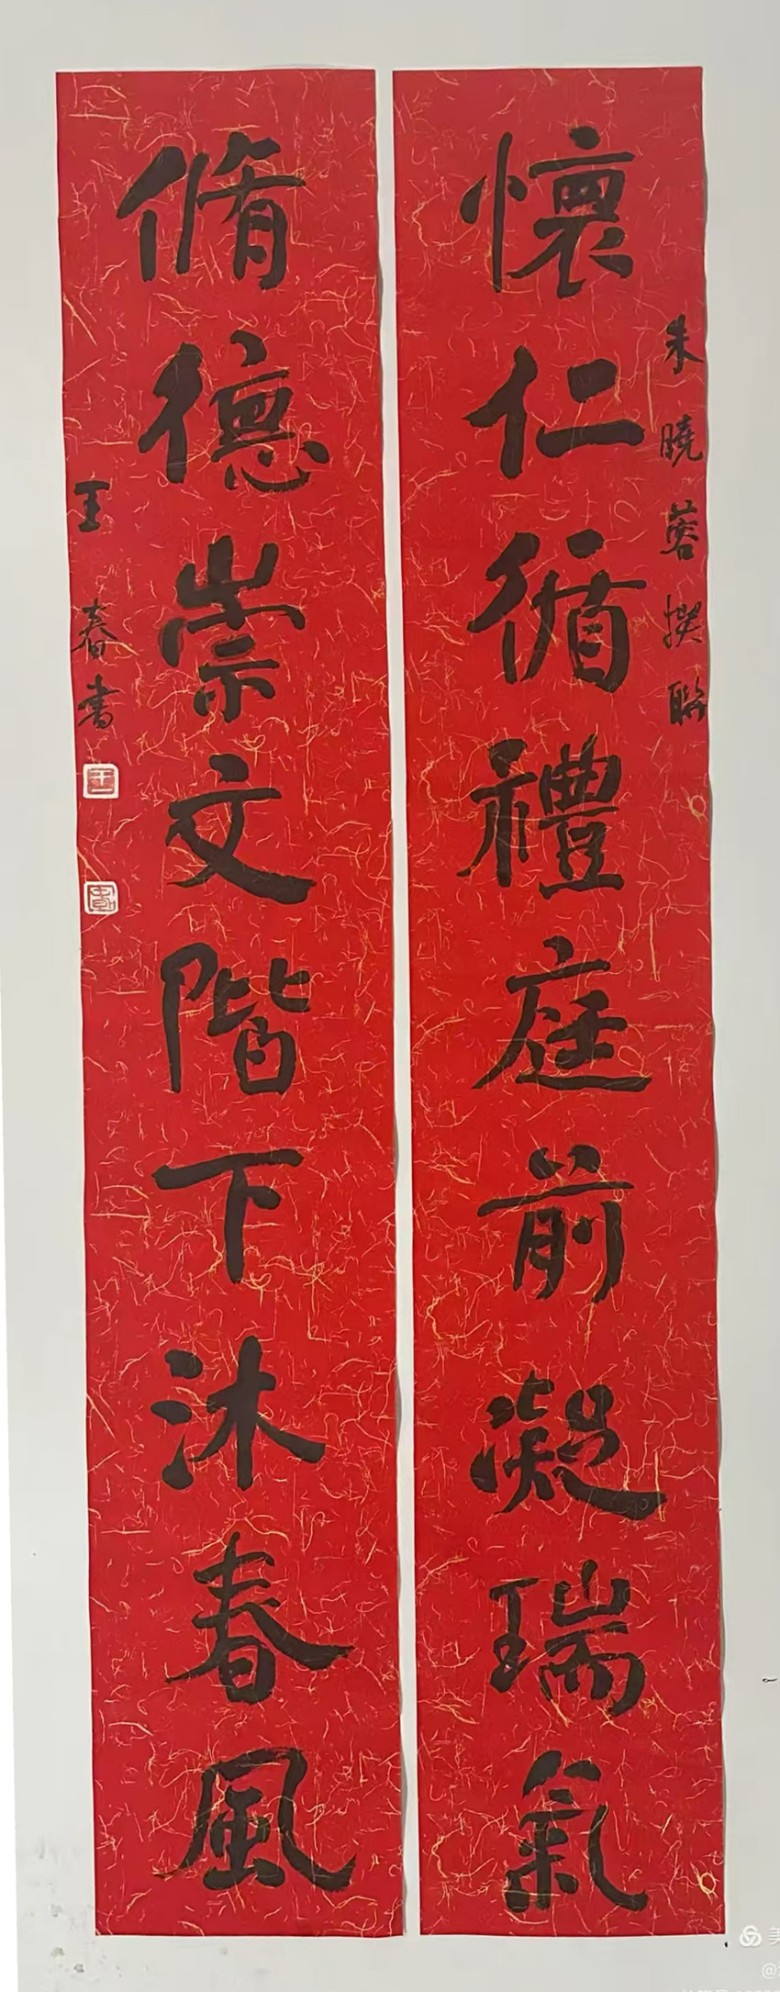 朱曉蓉撰聯
懷仁循禮庭前凝瑞氣
脩德崇文階下沐春風
王春書
王
春
美